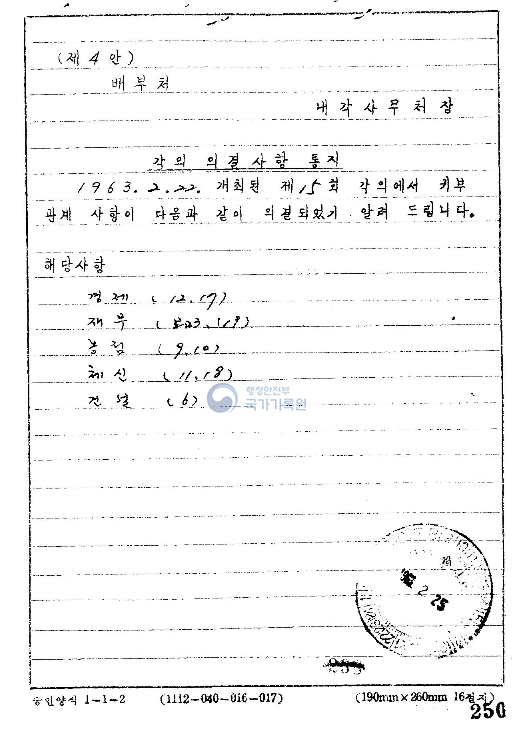 (제 4 안)
배부처
내각사무처장
각의 의결사항 통지
1963. 2. 22. 개최된 제15회 각의에서 귀부
관계 사항이 다음과 같이 의결되었기 알려 드립니다.
해당사항
경제 (12, 17)
재무 ( 23, 19)
농림 (9, 10)
체신 (11, 18)
건설 (6)
행정안전부
국가기록원
2 25
승인양식 1-1-2 (1112-040-016-017) (190mm×260mm 16절지)
250